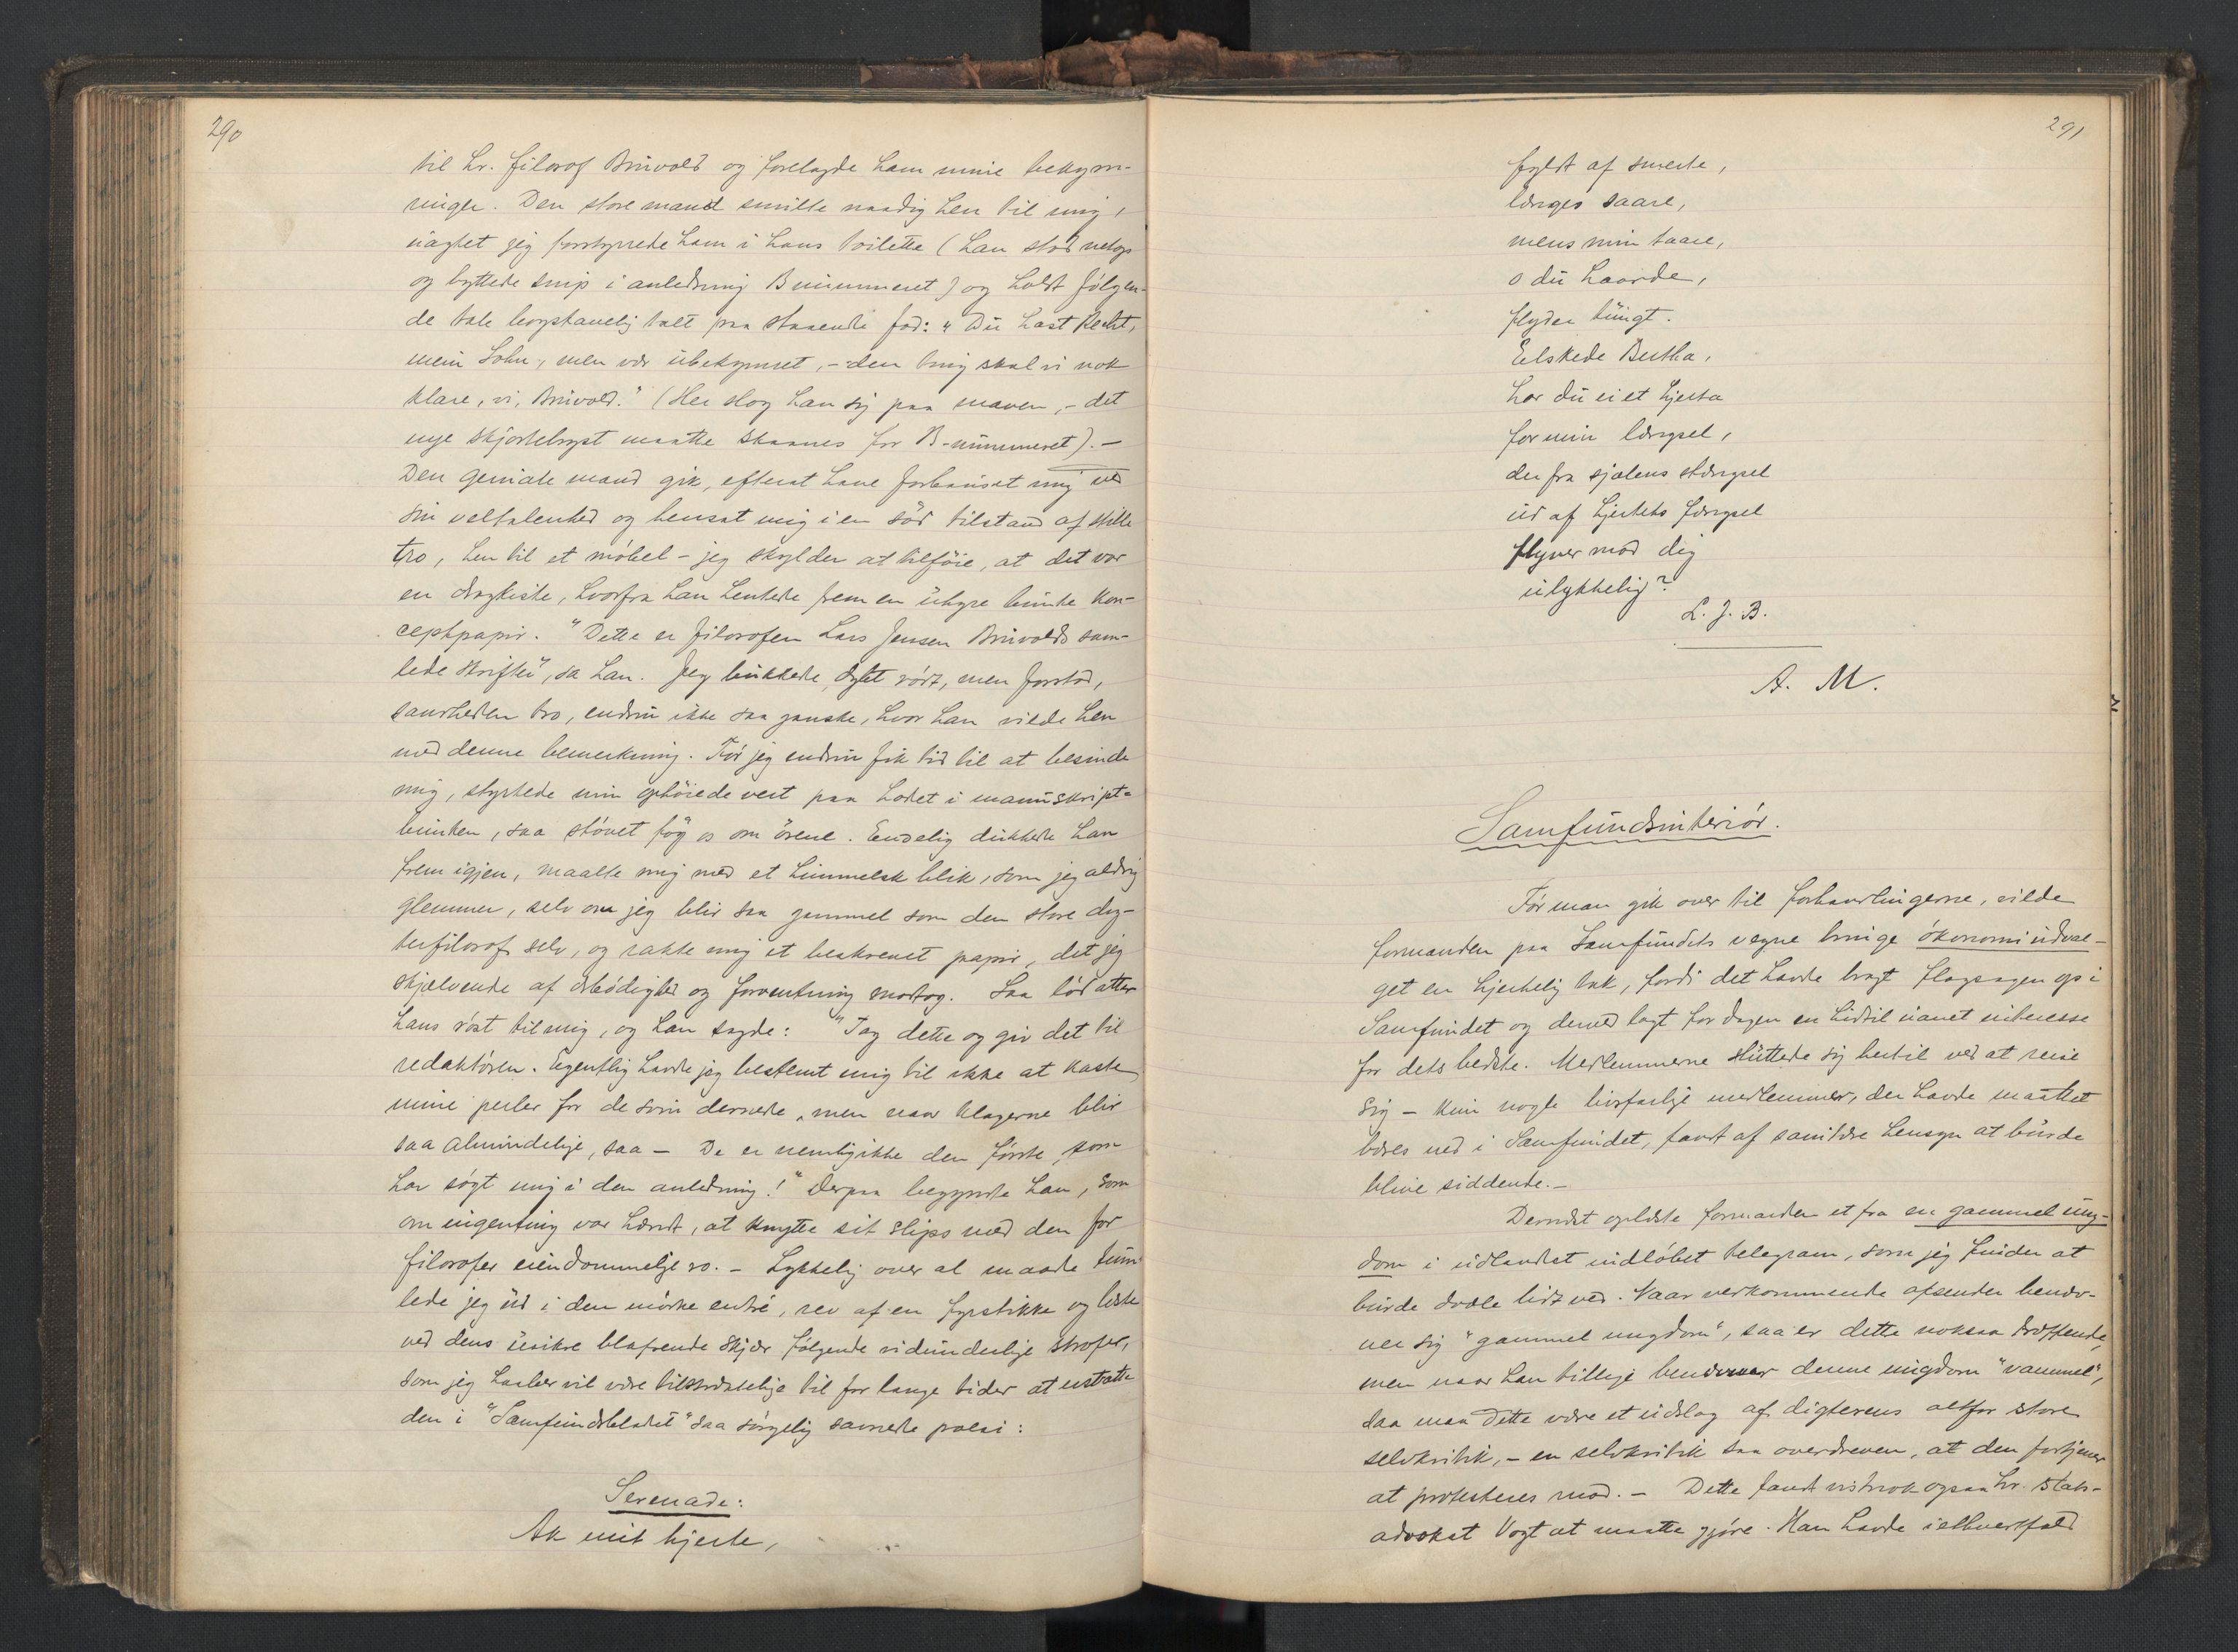 290
til hr. filosof Bruvold og forelagde ham mine bekym-
ringer. Den store mand smilte naadig hen til mig,
uagtet jeg forstyrrede ham i hans toilette (han stod netop
og byttede snip i anledning B nummeret) og holdt følgen-
de tale bogstavelig talt paa staaende fod: "Du hast Recht,
mein Sohn, men vær ubekymret, - den ting skal vi nok
klare, vi, Bruvold." (Her slog han sig paa maven, - det
nye skjortebryst maatte skaanes for B-nummeret). -
Den geniale mand gik, efterat have forbauset mig ved
sin veltalenhed og hensat mig i en sød tilstand af stille
tro, hen til et møbel - jeg skylder at tilføie, at det var
en dragkiste, hvorfra han hentede frem en uhyre bunke kon-
ceptpapir. "Dette er filosofen Lars Jensen Bruvolds sam-
lede skrifter", sa han. Jeg bukkede, dybt rørt, men forstod,
sandheden tro, endnu ikke saa ganske, hvor han vilde hen
med denne bemerkning. Før jeg endnu fik tid til at besinde
mig, styrtede min ophøiede vert paa hodet i manuskript-
bunken, saa støvet føg os om ørene. Endelig dukkede han
frem igjen, maalte mig med et himmelsk blik, som jeg aldrig
glemmer, selv om jeg blir saa gammel som den store dig-
terfilosof selv, og rakte mig et beskrevet papir, det jeg
skjælvende af ærbødighed og forventning modtog. Saa lød atter
hans røst til mig, og han sagde: "Tag dette og giv det til
redaktøren. Egentlig havde jeg bestemt mig til ikke at kaste
mine perler for de svin dernede, men naar klagerne blir
saa almindelige, saa - De er nemlig ikke den første, som
har søgt mig i den anledning!" Derpaa begyndte han, som
om ingenting var hændt, at knytte sit slips med den for
filosofer eiendommelige ro. - Lykkelig over al maade tum-
lede jeg ud i den mørke entré, rev af en fyrstikke og læste
ved dens usikre blafrende skjær følgende vidunderlige strofer,
som jeg haaber vil være tilstrækkelige til for lange tider at erstatte
den i "Samfundsbladet" saa sørgelig savnede poesi:
Serenade:
Ak mit hjerte,
291
fyldt af smerte,
længes saare,
mens min taare,
o du haarde,
flyder tungt.
Elskede Bertha,
har du ei et hjerta
for min længsel,
der fra sjælens stængsel
ud af hjertets fængsel
flyver mod dig
ulykkelig?
L. J. B.
A. M.
Samfundsinteriør.
Før man gik over til forhandlingerne, vilde
formanden paa Samfundets vegne bringe økonomiudval-
get en hjertelig tak, fordi det havde bragt flagsagen op i
Samfundet og derved lagt for dagen en hidtil uanet interesse
for dets bedste. Medlemmerne sluttede sig hertil ved at reise
sig - kun nogle livsfarlige medlemmer, der havde maattet
bæres ned i Samfundet, fandt af sanitære hensyn at burde
blive siddende. -
Dernæst oplæste formanden et fra en gammel ung-
dom i udlandet indløbet telegram, som jeg finder at
burde dvæle lidt ved. Naar vedkommende afsender benæv-
ner sig "gammel ungdom", saa er dette noksaa træffende,
men naar han tillige benævner denne ungdom "vammel",
saa maa dette være et udslag af digterens altfor store
selvkritik, - en selvkritik saa overdreven, at den fortjener
at protesteres mod. - Dette fandt vistnok ogsaa hr. stats-
advokat Vogt at maatte gjøre. Han havde ialhvertfald